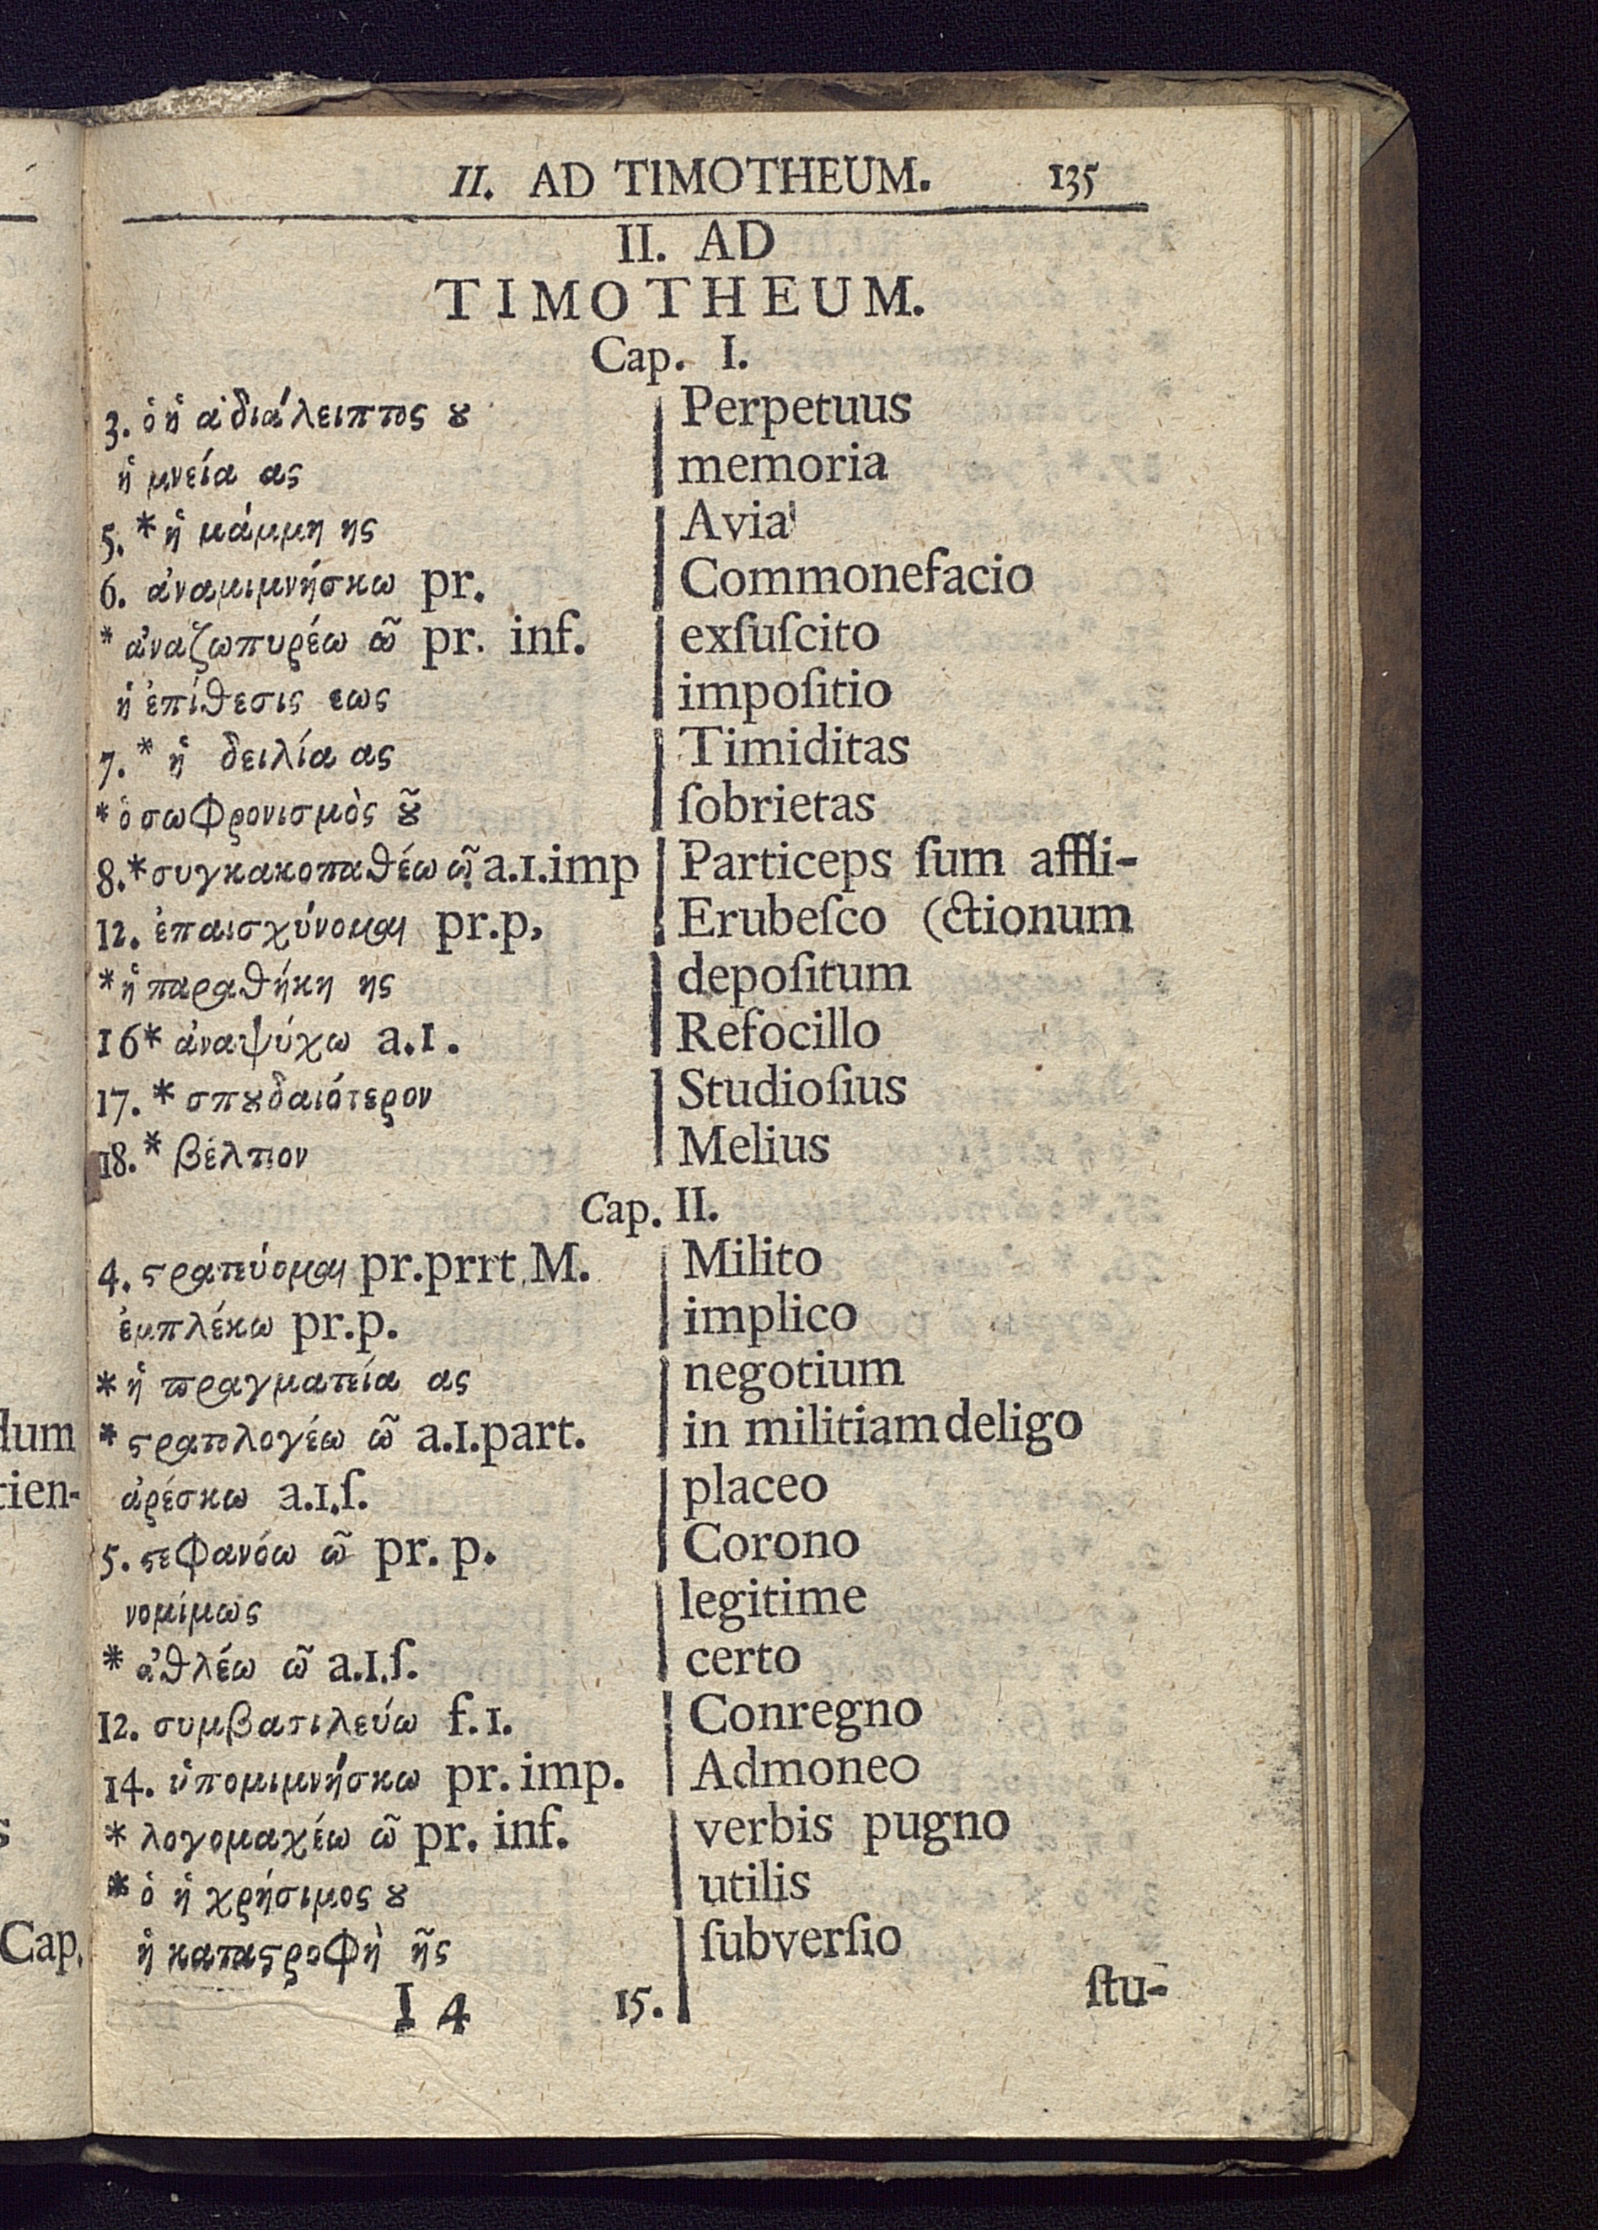 II. AD TIMOTHEUM. 135
II. AD
TIMOTHEUM.
Cap. I.
3. ὁ ἡ ἀδιάλειπτος ȣ Perpetuus
ἡ μνεία ας memoria
5. * ἡ μάμμη ης Avia
6. ἀναμιμνήσκω pr. Commonefacio
* ἀναζωπυρέω ῶ pr. inf. exſuſcito
ἡ ἐπίθεσις εως impoſitio
7. * ἡ δειλία ας Timiditas
* ὁ σωφρονισμὸς ȣ͂ ſobrietas
8. * συγκακοπαθέω ῶ a.1.imp Particeps ſum affli-
12. ἐπαισχύνομαι pr.p, Erubeſco (ctionum
* ἡ παραθήκη ης depoſitum
16* ἀναψύχω a.1. Refocillo
17. * σπȣδαιότερον Studioſius
18. * βέλτιον Melius
Cap. II.
4. ϛρατεύομαι pr.prrt M. Milito
ἐμπλέκω pr.p. implico
* ἡ πραγματεία ας negotium
* ϛρατολογέω ῶ a.1.part. in militiam deligo
ἀρέσκω a.1.ſ. placeo
5. ϛεφανόω ῶ pr. p. Corono
νομίμως legitime
* ἀθλέω ῶ a.1.ſ. certo
12. συμβασιλεύω f.1. Conregno
14. ὑπομιμνήσκω pr. imp. Admoneo
* λογομαχέω ῶ pr. inf. verbis pugno
* ὁ ἡ χρήσιμος ȣ utilis
ἡ καταϛροφὴ ῆς ſubverſio
I 4 15. ſtu-